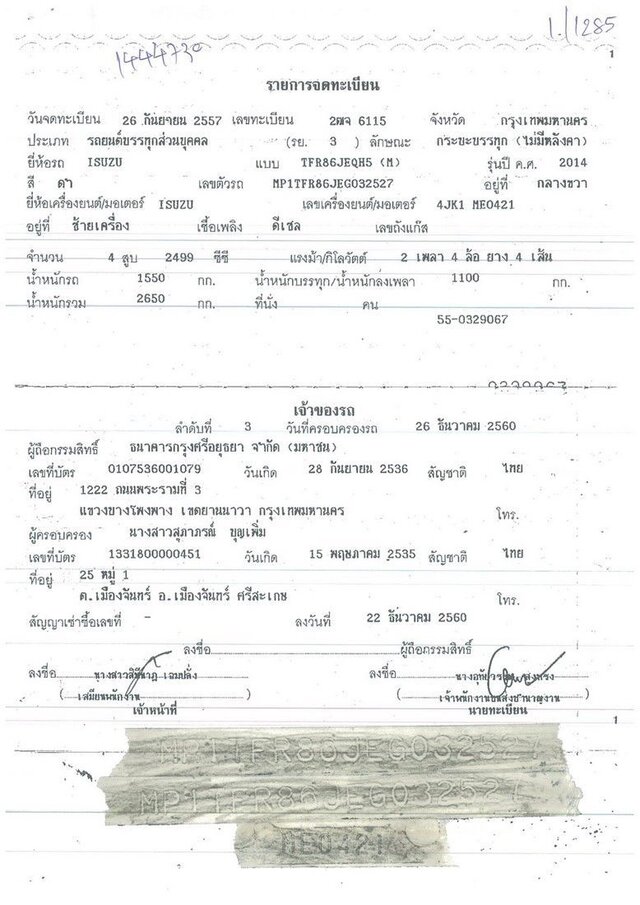 1./1285
1444730
1
รายการจดทะเบียน
วันจดทะเบียน 26 กันยายน 2557 เลขทะเบียน 2ฒจ 6115 จังหวัด กรุงเทพมหานคร
ประเภท รถยนต์บรรทุกส่วนบุคคล (รย. 3 ) ลักษณะ กระบะบรรทุก (ไม่มีหลังคา)
ยี่ห้อรถ ISUZU แบบ TFR86JEQH5 (M) รุ่นปี ค.ศ. 2014
สี ดำ เลขตัวรถ MP1TFR86JEG032527 อยู่ที่ กลางขวา
ยี่ห้อเครื่องยนต์/มอเตอร์ ISUZU เลขเครื่องยนต์/มอเตอร์ 4JK1 ME0421
อยู่ที่ ซ้ายเครื่อง เชื้อเพลิง ดีเซล เลขถังแก๊ส
จำนวน 4 สูบ 2499 ซีซี แรงม้า/กิโลวัตต์ 2 เพลา 4 ล้อ ยาง 4 เส้น
น้ำหนักรถ 1550 กก. น้ำหนักบรรทุก/น้ำหนักลงเพลา 1100 กก.
น้ำหนักรวม 2650 กก. ที่นั่ง คน
55-0329067
เจ้าของรถ
ลำดับที่ 3 วันที่ครอบครองรถ 26 ธันวาคม 2560
ผู้ถือกรรมสิทธิ์ ธนาคารกรุงศรีอยุธยา จำกัด (มหาชน)
เลขที่บัตร 0107536001079 วันเกิด 28 กันยายน 2536 สัญชาติ ไทย
ที่อยู่ 1222 ถนนพระรามที่ 3
แขวงบางโพงพาง เขตยานนาวา กรุงเทพมหานคร โทร.
ผู้ครอบครอง นางสาวสุภาภรณ์ บุญเพิ่ม
เลขที่บัตร 1331800000451 วันเกิด 15 พฤษภาคม 2535 สัญชาติ ไทย
ที่อยู่ 25 หมู่ 1
ต.เมืองจันทร์ อ.เมืองจันทร์ ศรีสะเกษ โทร.
สัญญาเช่าซื้อเลขที่ - ลงวันที่ 22 ธันวาคม 2560
ลงชื่อ ผู้ถือกรรมสิทธิ์
ลงชื่อ นางสาว ลงชื่อ
( เสมียนพนักงาน ) ( เจ้าพนักงานขนส่งชำนาญงาน )
เจ้าหน้าที่ นายทะเบียน
1
MP1TFR86JEG032527
MP1TFR86JEG032527
ME0421